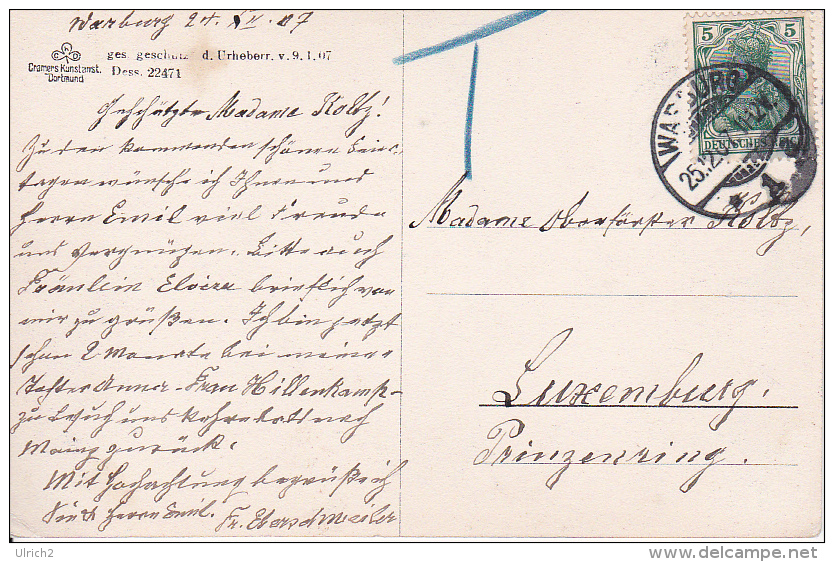 Warburg 24. XII. 07
ges. geschützt d. Urheberr. v. 9.1.07
Cramers Kunstanst.
Dortmund
Dess. 22471
Geschätzte Madame Koltz!
Zu den kommenden schönen Feier-
tagen wünsche ich Ihnen und
Herrn Emil viel Freude
und Vergnügen. Bitte auch
Fräulein Elvira brieflich von
mir zu grüßen. Ich bin jetzt
schon 2 Monate bei meiner
Tochter Anna - Frau Hillenkamp -
zu und nach
Mainz zurück.
Mit Hochachtung begrüße ich
Sie & Herrn Emil.
Fr. Eberschweiler
5 5
DEUTSCHES REICH
WARBURG
25.12.
Madame Oberförster Koltz,
Luxemburg.
Prinzenring.
Ulrich2
www.delcampe.net